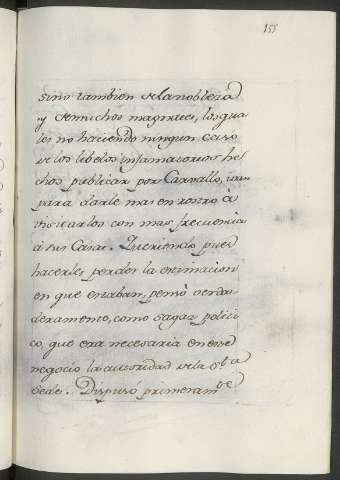 155
sino tambien de la nobleza
y de muchos magnates, los qua
les no haciendo ningun caso
de los libelos infamatorios he
chos publicar por Carvallo, ivan
para darle mas en rostro à
visitarlos con mas frecuencia
à sus Casas. Queriendo pues
hacerles perder la estimacion
en que estaban, pensò verda
deramente, como sagaz politi
co, que era necesaria en este
negocio la autoridad de la Sta
Sede. Dispusò primeramte